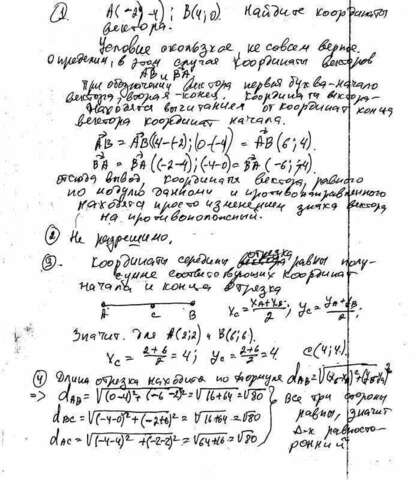 ① A(-2;-4); B(4;0). Найдите координаты
вектора.
Условие скользкое, не совсем верное.
Определим, в этом случае координаты векторов
AB и BA.
При обозначении вектора первая буква-начало
вектора, вторая-конец. Координаты вектора-
находятся вычитанием от координат конца
вектора координат начала.
AB = AB(4-(-2); 0-(-4)) = AB(6; 4).
BA = BA(-2-4); (-4-0) = BA(-6; -4).
отсюда вывод, координаты вектора, равного
по модулю данному и противонаправленного
находятся просто изменением знака вектора
на противоположный.
② Не разрешимо.
③ Координаты середины отрезка равны полу-
сумме соответствующих координат
начала и конца отрезка
A C B
xc = (xA+xB)/2; yc = (yA+yB)/2
Значит для A(2;2) и B(6;6).
xc = (2+6)/2 = 4; yc = (2+6)/2 = 4 C(4;4).
④ Длина отрезка находится по формуле dAB = √
=> dAB = √(0-4)²+(-6-2)² = √16+64 = √80
dBC = √(-4-0)²+(-2+6)² = √16+64 = √80
dAC = √(-4-4)²+(-2-2)² = √64+16 = √80
Все три стороны
равны, значит
Δ-к равносто-
ронний